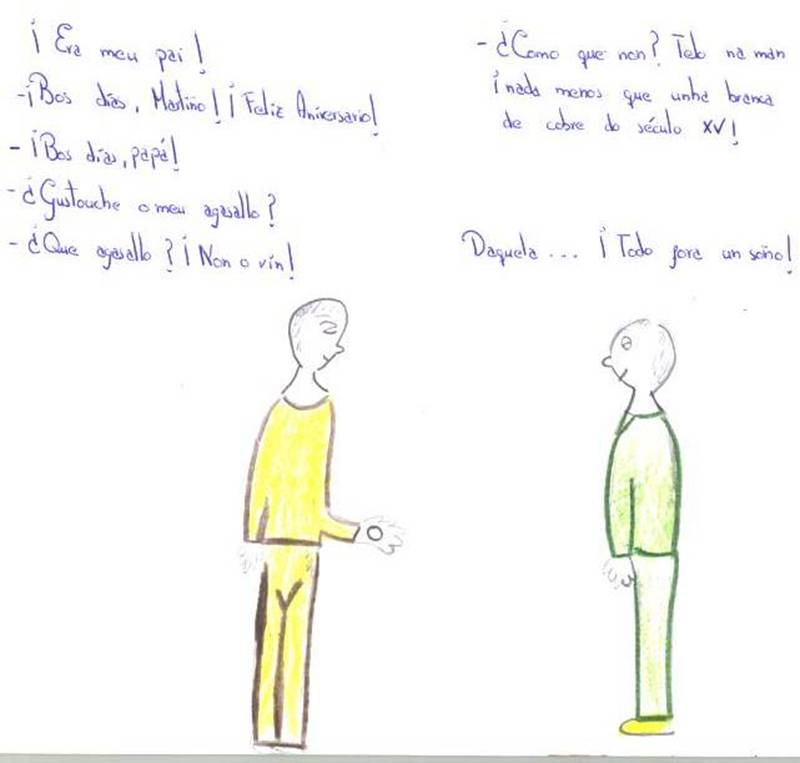 ¡Era meu pai!
-¡Bos días, Martiño! ¡Feliz Aniversario!
- ¡Bos días, papá!
- ¿Gustouche o meu agasallo?
- ¿Que agasallo? ¡Non o vin!
- ¿Como que non? Telo na man
¡nada menos que unha branca
de cobre do século XV!
Daquela... ¡Todo fora un soño!